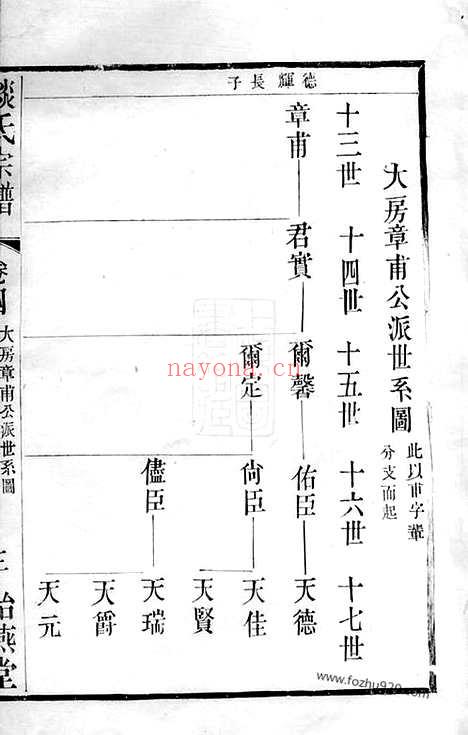 大房章甫公派世系圖
此以甫字輩
分支而起
十三世 十四世 十五世 十六世 十七世
德輝長子
章甫 君實 爾馨 佑臣 天德
爾定 尙臣 天佳
天賢
儘臣 天瑞
天爵
天元
氏宗譜 卷四 大房章甫公派世系圖 三 治燕堂
nayona.cn
www.fozhu920.com